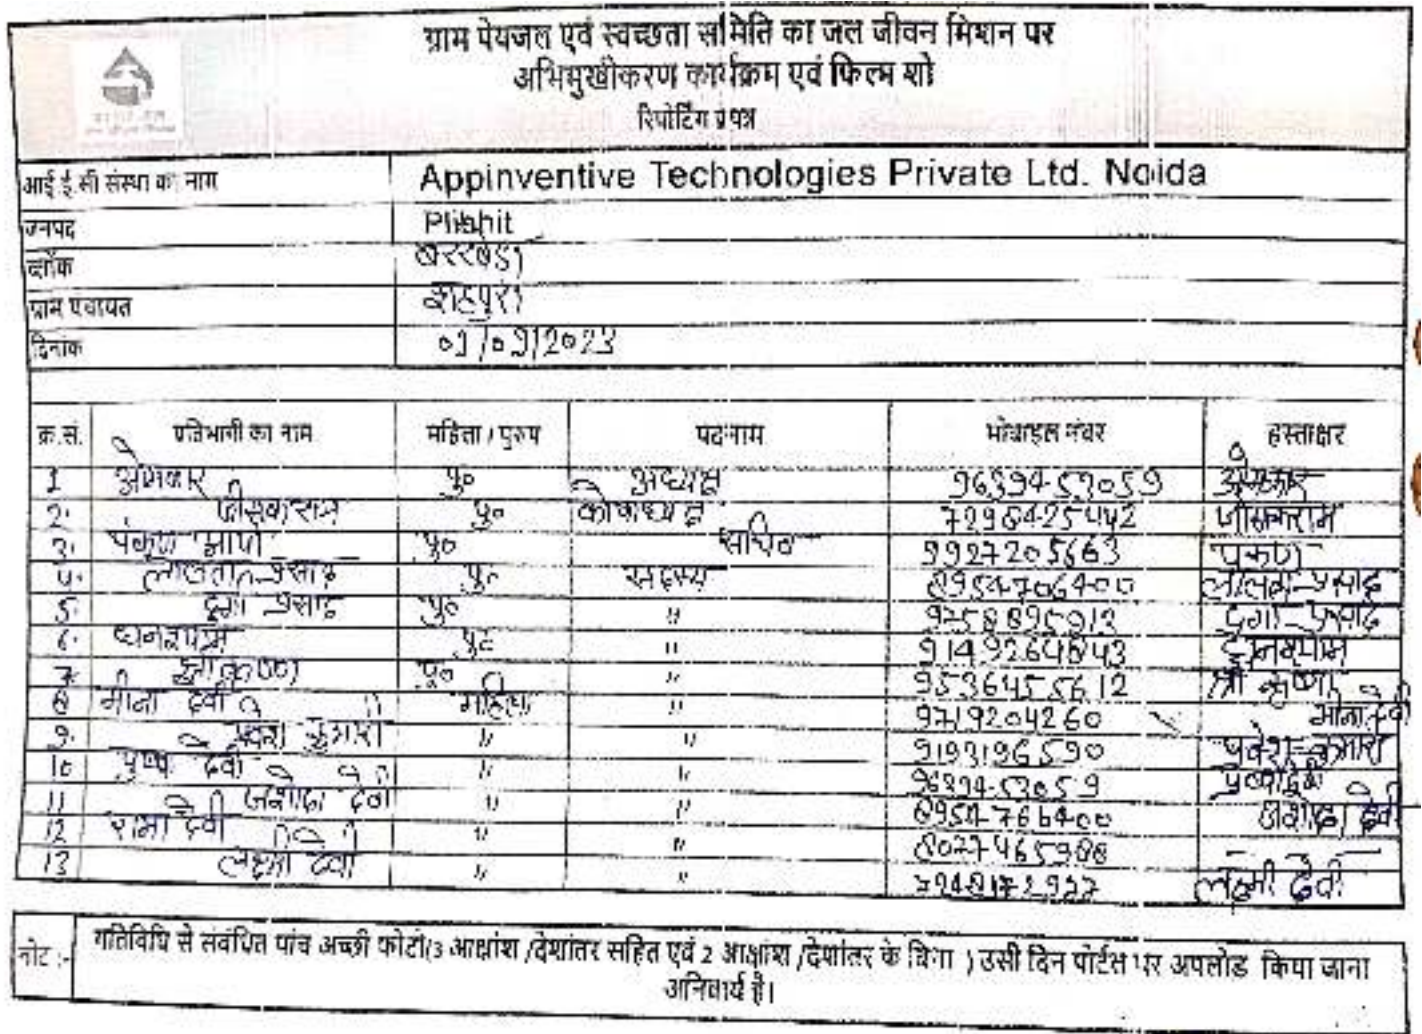 ग्राम पेयजल एवं स्वच्छता समिति का जल जीवन मिशन पर
अभिमुखीकरण कार्यक्रम एवं फिल्म शो
रिपोर्टिंग प्रपत्र
आई.ई.सी संस्था का नाम Appinventive Technologies Private Ltd. Noida
जनपद Plibhit
ब्लॉक बरखेडा
ग्राम पंचायत शाहपुरा
दिनांक
क्र.सं. प्रतिभागी का नाम महिला / पुरुष पदनाम मोबाइल नंबर हस्ताक्षर
1 ओमकार पु० अध्यक्ष 9639453059 ओमकार
2. पु० कोषाध्यक्ष 7298425442
3. पु० सचिव 9927205663 पंकज
4. पु० सदस्य 8954706400
5. दुर्गा प्रसाद पु० " दुर्गा प्रसाद
6. घनश्याम पु० " घनश्याम
7. श्री कृष्ण पु० " 9536455612 श्री कृष्ण
8 मीना देवी महिला " 9719204260 मीना देवी
9. प्रवेश कुमारी " " 9193196590 प्रवेश कुमारी
10 पुष्पा देवी " " 9639453059 पुष्पा देवी
11 जशोदा देवी " " जशोदा देवी
12 रामा देवी " "
13 लक्ष्मी देवी " " लक्ष्मी देवी
नोट :- गतिविधि से संबंधित पांच अच्छी फोटो(3 आक्षांश /देशांतर सहित एवं 2 आक्षांश /देशांतर के बिना ) उसी दिन पोर्टल पर अपलोड किया जाना
अनिवार्य है।